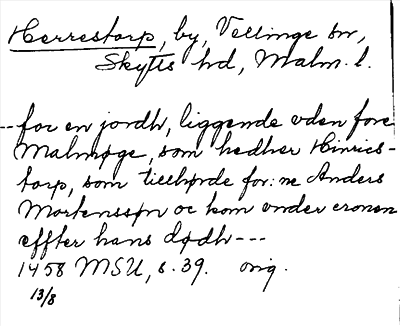 Herrestorp, by, Vellinge sn,
Skytts hd, Malm. l.
--for en jordh, liggende vden fore
Malmøge, som hedher Hinrics-
torp, som tillhørde for:ne Anders
Mortenssøn oc kom vnder cronen
effter hans dødh---
1458 MSU, s. 39. orig.
13/8